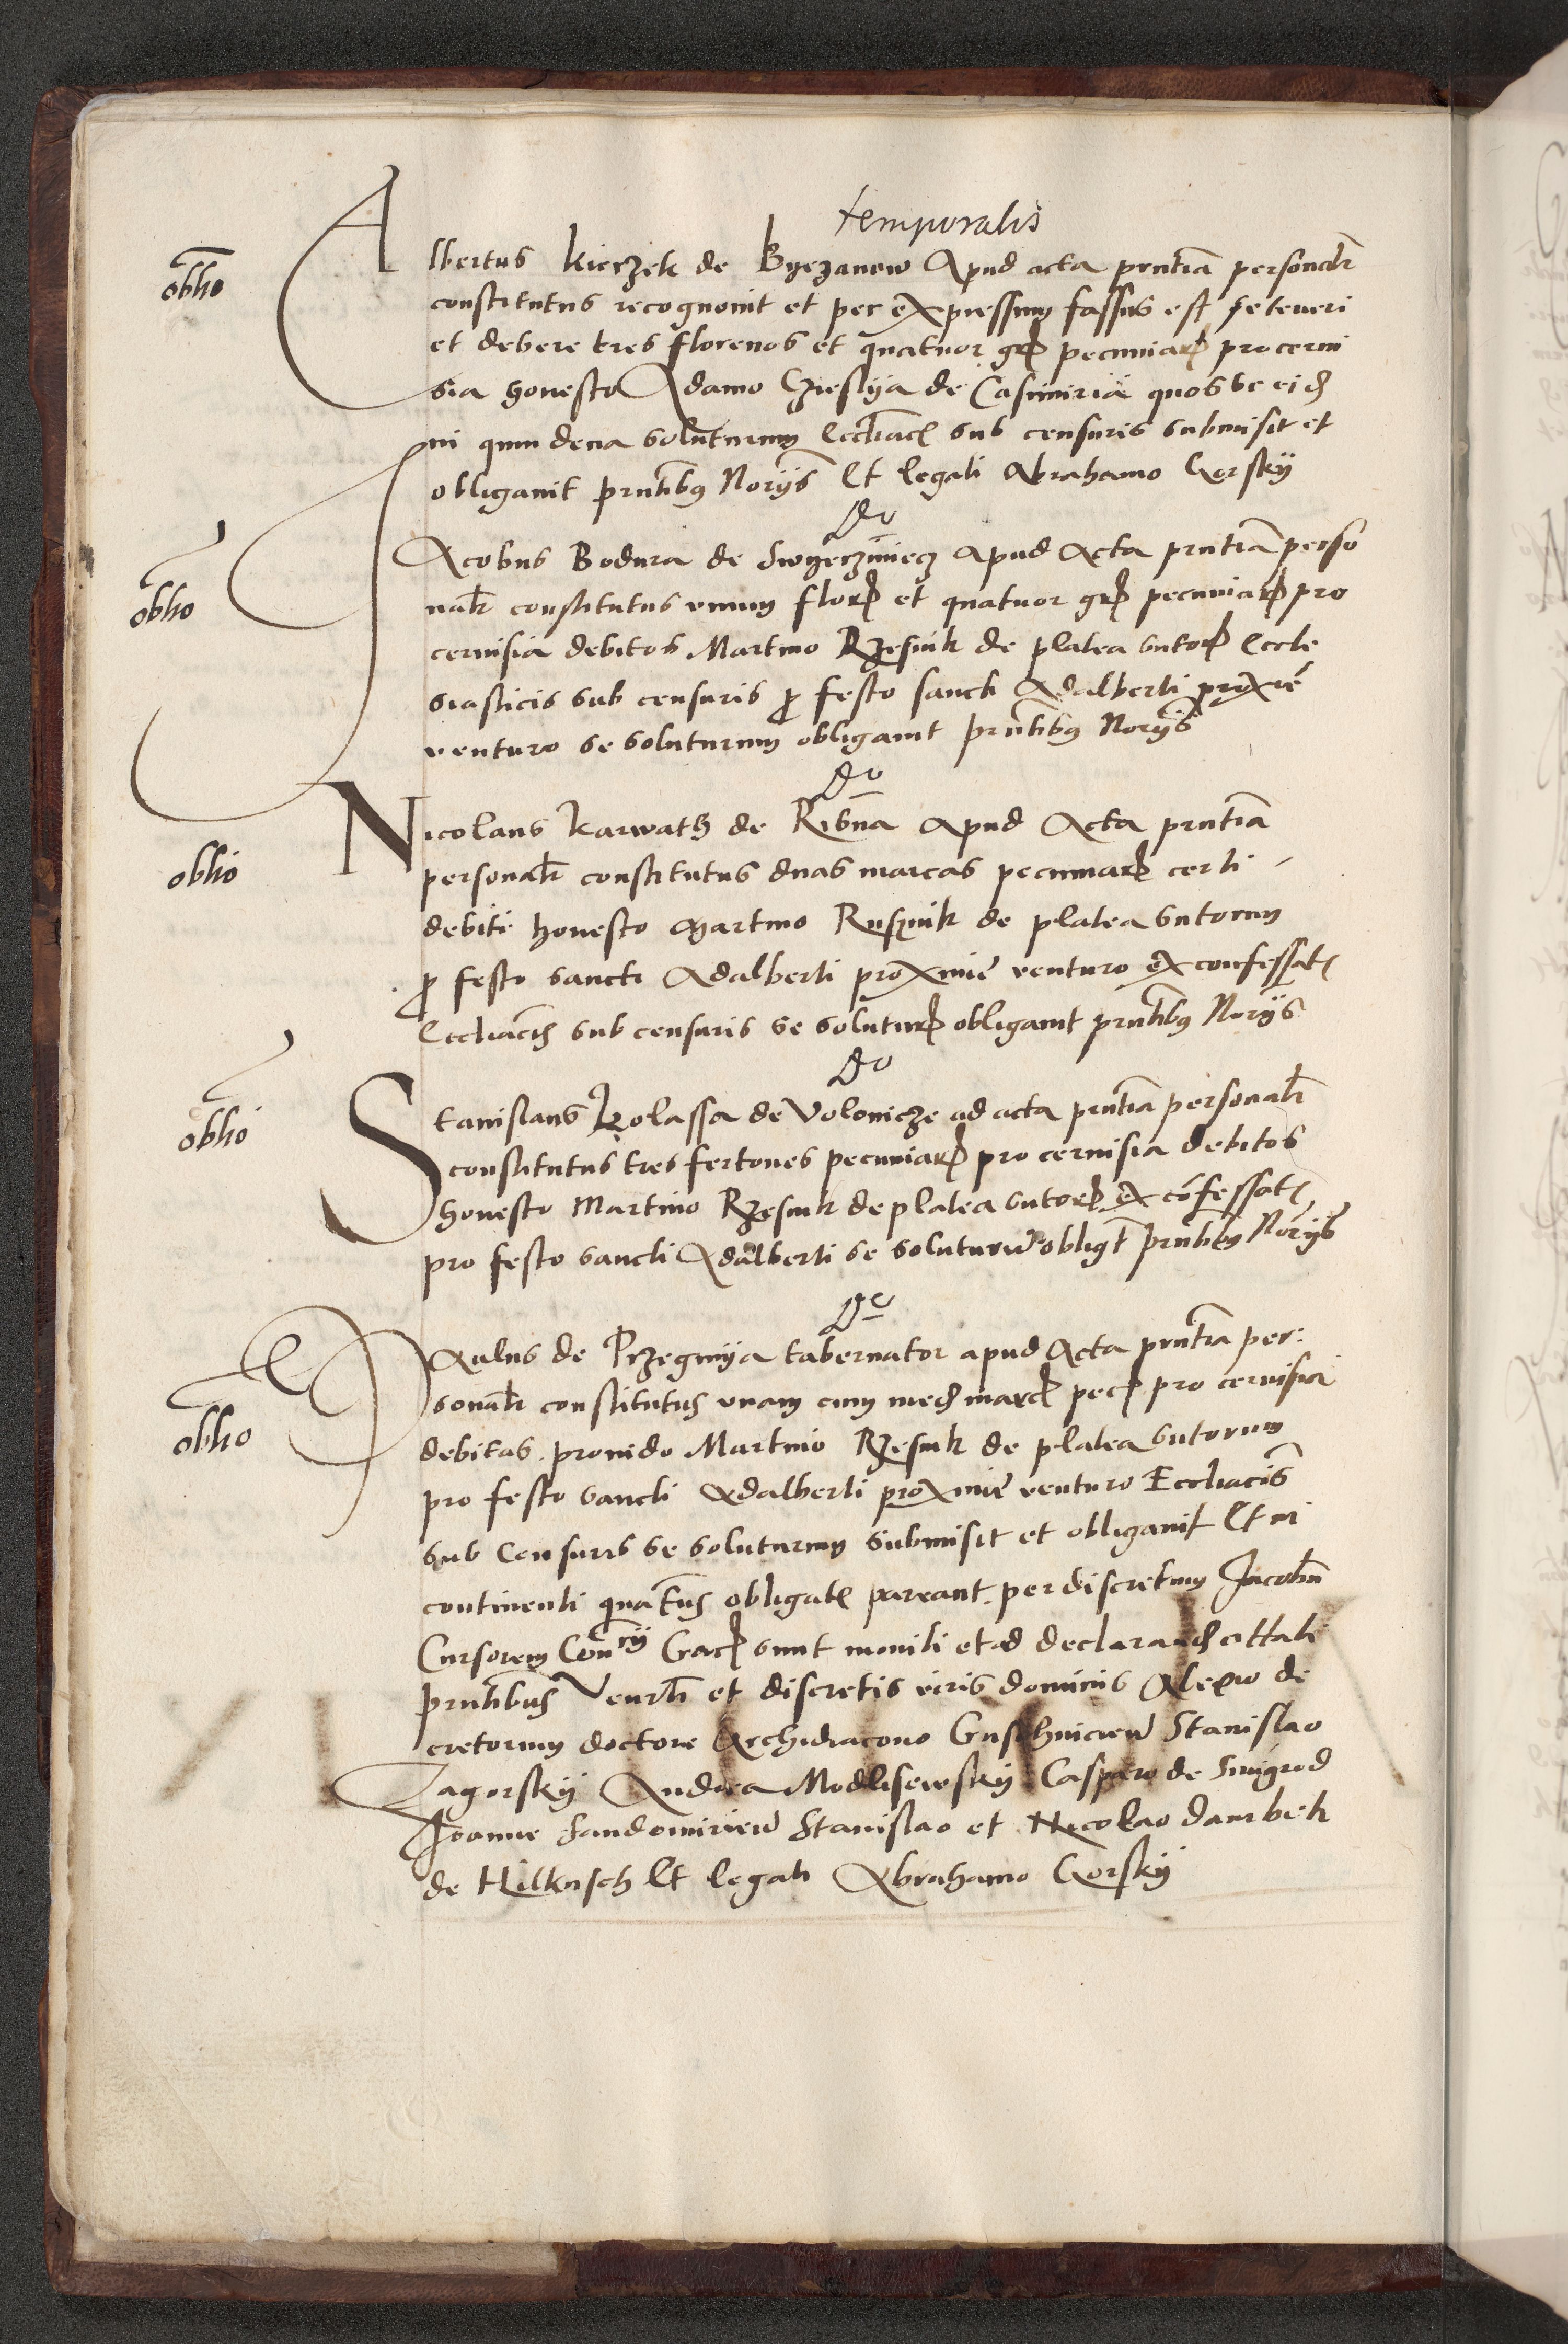 temporalis
oblio
Albertus Kierzek de Byezanow Apud acta prntia personalr
constitutus recognouit et per expressum fassus est se teneri
et debere tres florenos et quatuor gr pecuniar pro cerui
sia honesto Adamo de Casimiria quos se eid
in quindena soluturum Eccliac sub censuris submisit et
obligauit prntibus Noriis Et legali Abrahamo Gorsky
do
oblio
Jacobus Bodura de apud Acta prntia perso
nalr constitutus vnum flor et quatuor gr pecuniar pro
ceruisia debitos Martino Rzesnik de platea sutor Eccle
siasticis sub censuris p festo sancti Adalberti proxie
venturo se soluturum obligauit prntibus Noriis
do
oblio
Nicolaus Karwath de Ribna apud Acta prntia
personalr constitutus duas marcas pecuniar certi
debiti honesto Martino Rusznik de platea sutorum
p festo sancti Adalberti proxime venturo ex confessat
Eccliacis sub censuris se solutur obligauit prntibus Noriis
do
oblio
Stanislaus Kolassa de Volonicze ad acta prntia personalr
constitutus tres fertones pecuniar pro ceruisia debitos
honesto Martino Rzesnik de platea sutor ex cofessat
pro festo sancti Adalberti se soluturu obligt prntibus Noriis
do
oblio
Paulus de Przeginya tabernator apud Acta prntia per
sonalr constitutus vnam cum med marc pec pro ceruisia
debitas prouido Martino Rzesnik de platea sutorum
pro festo sancti Adalberti proxime venturo Eccliacis
sub Censuris se soluturum submisit et obligauit Et in
continenti quatus obligat pareant per discretum Jacobu
Cursorem Conrii Grac sunt moniti et ad declarand cittati
prntibus Venrli et discretis viris dominis Alexio de
cretorum doctore Archidiacono Stanislao
Zagorsky Andrea Modlisewsky Casparo de Smigrod
Joanne Sandomirien Stanislao et Nicolao Dambek
de Hilkusch Et legali Abrahamo Gorsky